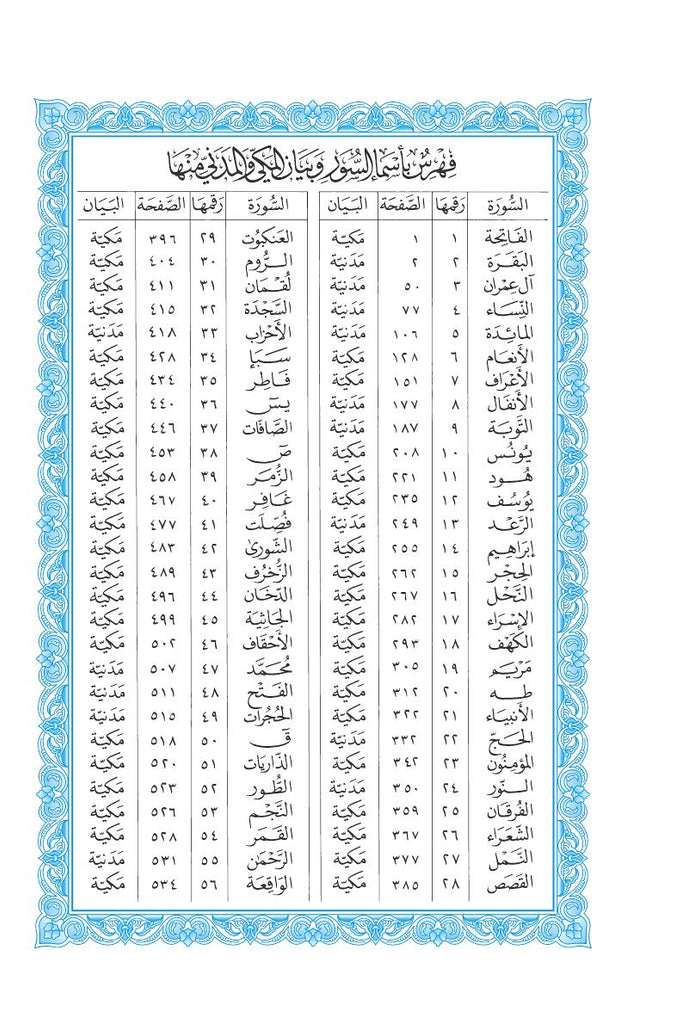 فِهْرِسْ بِأَسْمَاءِ السُّوَرِ وَبَيَانِ المَكِّيِّ وَالمَدَنِيِّ مِنْهَا
السُّورَة رَقمهَا الصَّفحَة البَيَان
الفَاتِحَة ١ ١ مَكيّة
البَقَرَة ٢ ٢ مَدَنيّة
آل عِمْرَان ٣ ٥٠ مَدَنيّة
النِّسَاء ٤ ٧٧ مَدَنيّة
المَائِدَة ٥ ١٠٦ مَدَنيّة
الأَنعَام ٦ ١٢٨ مَكيّة
الأَعْرَاف ٧ ١٥١ مَكيّة
الأَنفَال ٨ ١٧٧ مَدَنيّة
التَّوبَة ٩ ١٨٧ مَدَنيّة
يُونُس ١٠ ٢٠٨ مَكيّة
هُود ١١ ٢٢١ مَكيّة
يُوسُف ١٢ ٢٣٥ مَكيّة
الرَّعْد ١٣ ٢٤٩ مَدَنيّة
إبرَاهِيم ١٤ ٢٥٥ مَكيّة
الحِجْر ١٥ ٢٦٢ مَكيّة
النَّحْل ١٦ ٢٦٧ مَكيّة
الإِسْرَاء ١٧ ٢٨٢ مَكيّة
الكَهْف ١٨ ٢٩٣ مَكيّة
مَرْيَم ١٩ ٣٠٥ مَكيّة
طه ٢٠ ٣١٢ مَكيّة
الأَنبيَاء ٢١ ٣٢٢ مَكيّة
الحَجّ ٢٢ ٣٣٢ مَدَنيّة
المؤمِنُون ٢٣ ٣٤٢ مَكيّة
النّور ٢٤ ٣٥٠ مَدَنيّة
الفُرقَان ٢٥ ٣٥٩ مَكيّة
الشّعَرَاء ٢٦ ٣٦٧ مَكيّة
النَّمْل ٢٧ ٣٧٧ مَكيّة
القَصَص ٢٨ ٣٨٥ مَكيّة
السُّورَة رَقمهَا الصَّفحَة البَيَان
العَنكبُوت ٢٩ ٣٩٦ مَكيّة
الرُّوم ٣٠ ٤٠٤ مَكيّة
لُقْمَان ٣١ ٤١١ مَكيّة
السَّجْدَة ٣٢ ٤١٥ مَكيّة
الأَحْزَاب ٣٣ ٤١٨ مَدَنيّة
سَبَإ ٣٤ ٤٢٨ مَكيّة
فَاطِر ٣٥ ٤٣٤ مَكيّة
يسٓ ٣٦ ٤٤٠ مَكيّة
الصَّافّات ٣٧ ٤٤٦ مَكيّة
صٓ ٣٨ ٤٥٣ مَكيّة
الزُّمَر ٣٩ ٤٥٨ مَكيّة
غَافِر ٤٠ ٤٦٧ مَكيّة
فُصِّلَت ٤١ ٤٧٧ مَكيّة
الشّورىٰ ٤٢ ٤٨٣ مَكيّة
الزّخْرُف ٤٣ ٤٨٩ مَكيّة
الدّخَان ٤٤ ٤٩٦ مَكيّة
الجَاثِيَة ٤٥ ٤٩٩ مَكيّة
الأَحْقَاف ٤٦ ٥٠٢ مَكيّة
مُحَمَّد ٤٧ ٥٠٧ مَدَنيّة
الفَتْح ٤٨ ٥١١ مَدَنيّة
الحُجُرات ٤٩ ٥١٥ مَدَنيّة
قٓ ٥٠ ٥١٨ مَكيّة
الذّاريَات ٥١ ٥٢٠ مَكيّة
الطُّور ٥٢ ٥٢٣ مَكيّة
النَّجْم ٥٣ ٥٢٦ مَكيّة
القَمَر ٥٤ ٥٢٨ مَكيّة
الرَّحْمٰن ٥٥ ٥٣١ مَدَنيّة
الوَاقِعَة ٥٦ ٥٣٤ مَكيّة